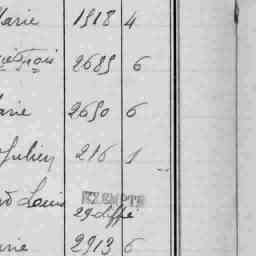 Marie 1918 4
François 2689 6
Marie 2690 6
Julien 216 1
Louis EXEMPTÉ
2e diffé
Marie 2913 6